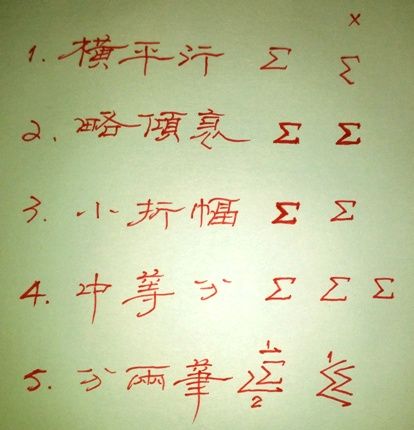 ×
1. 橫平行 Σ Σ
2. 略傾衷 Σ Σ
3. 小折幅 Σ Σ
4. 中等分 Σ Σ Σ
5. 分兩筆 1 Σ 2 1 Σ